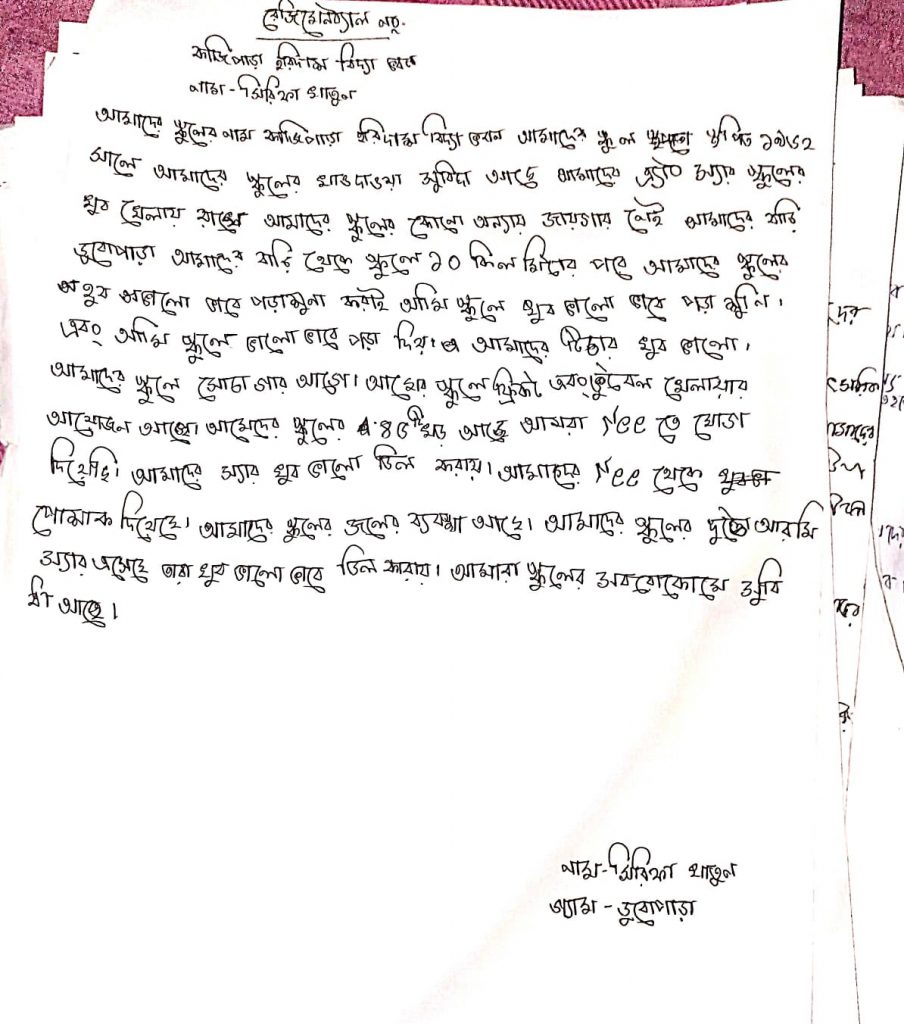 রেজিমেনট্যাল নং
কাজিপাড়া হরিদাস বিদ্যা ভবন
নাম - সিরিফা খাতুন
আমাদের স্কুলের নাম কাজিপাড়া হরিদাস বিদ্যা ভবন আমাদের স্কুল স্থপিত ১৯৬২
সালে আমাদের স্কুলের খাওদাওয়া সুবিদা আছে আমাদের স্যার স্কুলের
খুব খেলায় রাখে আমাদের স্কুলের কোনো অন্যায় জায়গার নেই আমাদের বাড়ি
ডুবোপাড়া আমাদের বাড়ি থেকে স্কুলে ১০ কিল মিটার পরে আমাদের স্কুলের
খুব ভালো ভাবে পড়াশুনা করাই আমি স্কুলে খুব ভালো ভাবে পড়া শুনি।
এবং আমি স্কুলে ভালো ভাবে পড়া দিয়। আমাদের টিচার খুব ভালো।
আমাদের স্কুলে মোটা গার আছে। স্কুলে এবং খেলাধার
আয়োজন আছে। আমেদের স্কুলের ৪৫ টি ঘড় আছে আমরা Ncc তে যোগ
দিয়েছি। আমাদের স্যার খুব ভালো ডিল করায়। আমাদের Ncc থেকে
পোষাক দিয়েছে। আমাদের স্কুলের জলের ব্যবস্থা আছে। আমাদের স্কুলের দুটো আরমি
স্যার এসেছে তারা খুব ভালো ভাবে ডিল করায়। আমারা স্কুলের সবরোকোমে সুবি
ধা আছে।
নাম - সিরিফা খাতুন
গ্যাম - ডুবোপাড়া